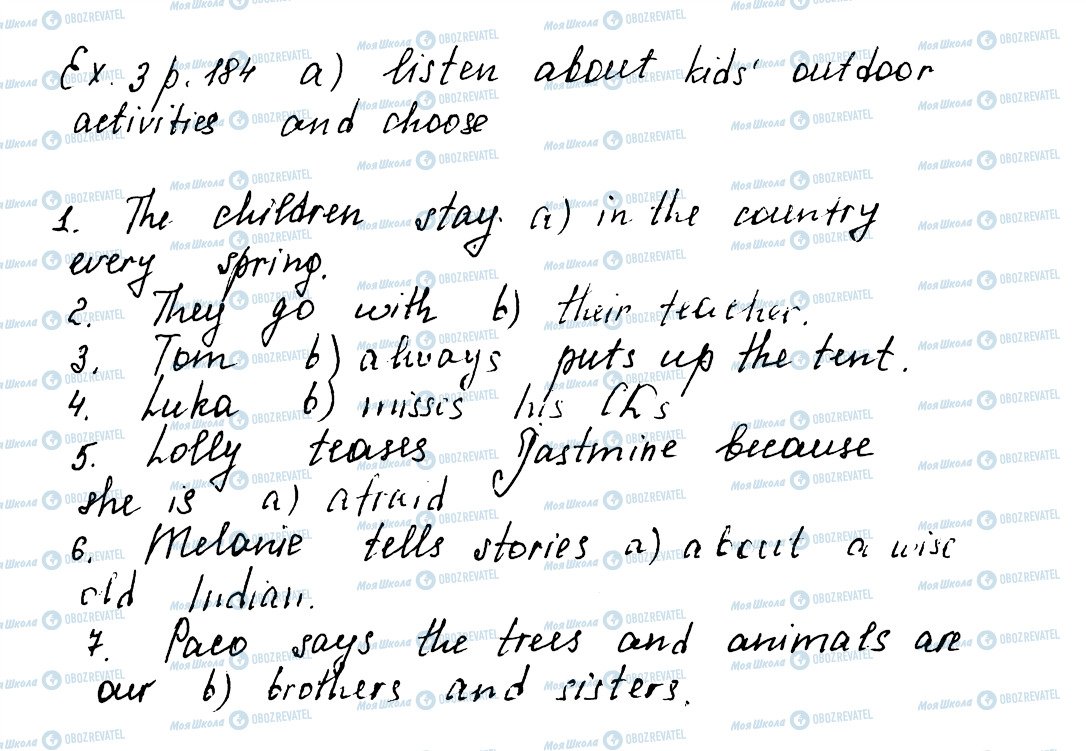 Ex. 3 p. 184 a) listen about kids' outdoor
activities and choose
1. The children stay. a) in the country
every spring.
2. They go with b) their teacher.
3. Tom b) always puts up the tent.
4. Luka b) misses his CDs
5. Lolly teases Jastmine because
she is a) afraid
6. Melanie tells stories a) about a wise
old Indian.
7. Paco says the trees and animals are
our b) brothers and sisters.